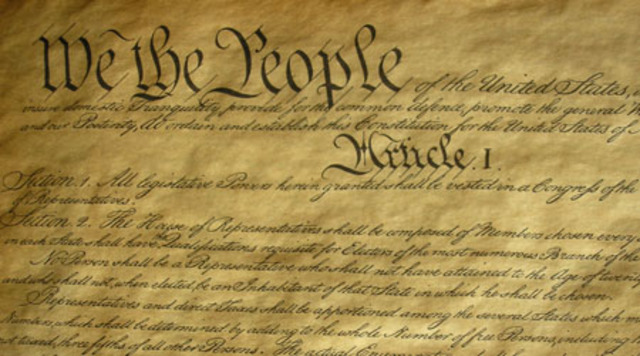 We the People of the United States,
insure domestic Tranquility, provide for the common defence, promote the general
and our Posterity, do ordain and establish this Constitution for the United States of
Article. I.
Section. 1. All legislative Powers herein granted shall be vested in a Congress of the
of Representatives.
Section. 2. The House of Representatives shall be composed of Members chosen every
in each State shall have Qualifications requisite for Electors of the most numerous Branch of the
No Person shall be a Representative who shall not have attained to the Age of twen
and who shall not, when elected, be an Inhabitant of that State in which he shall be chosen.
Representatives and direct Taxes shall be apportioned among the several States which m
Numbers, which shall be determined by adding to the whole Number of free Persons, including
not taxed, three fifths of all other Persons. The actual